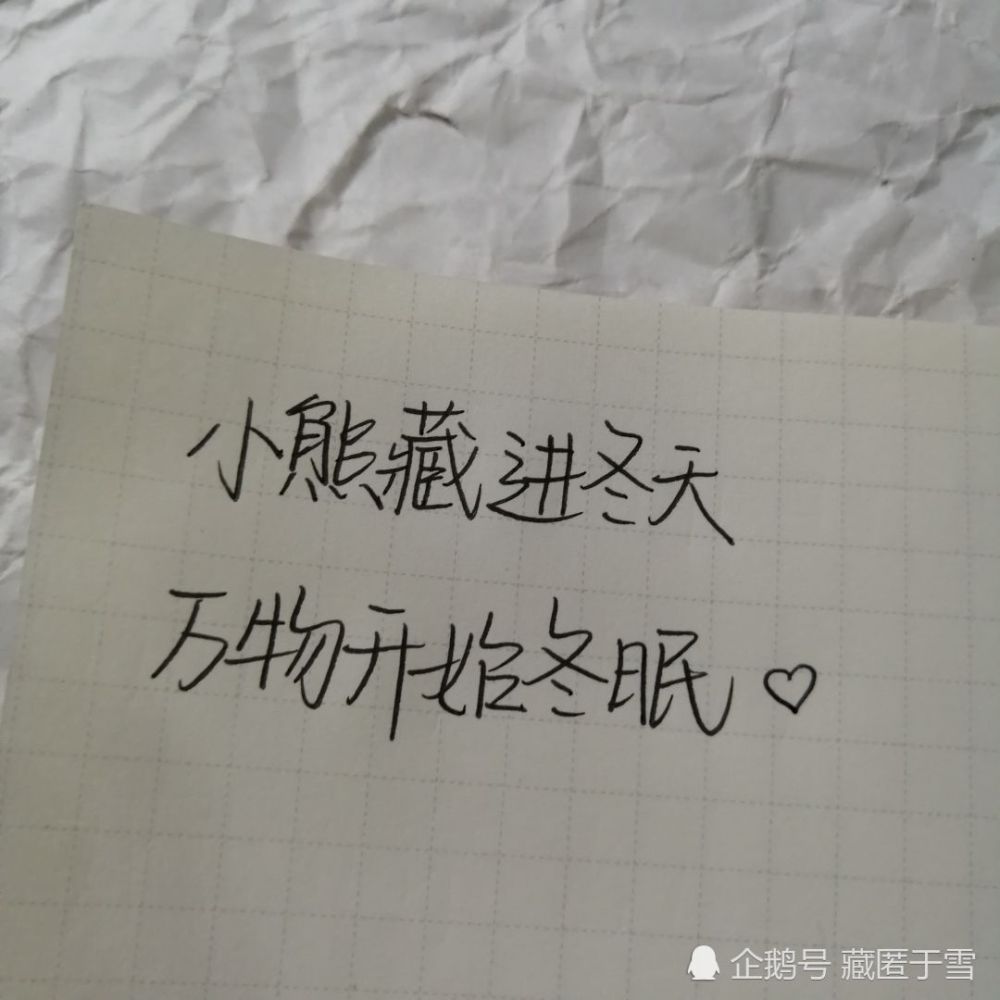 小熊藏进冬天
万物开始冬眠♡
企鹅号 藏匿于雪